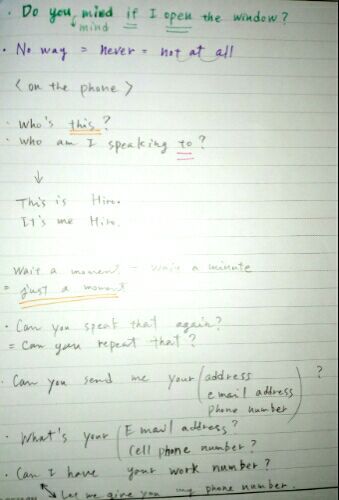 Do you mind if I open the window?
mind
· No way = never = not at all
< on the phone >
· Who's this?
· Who am I speaking to?
↓
This is Hiro.
It's me Hiro.
Wait a moment - wait a minute
= just a moment
· Can you speak that again?
= Can you repeat that?
· Can you send me your (address
email address
phone number) ?
· What's your (Email address?
Cell phone number?
· Can I have your work number?
Let me give you my phone number.